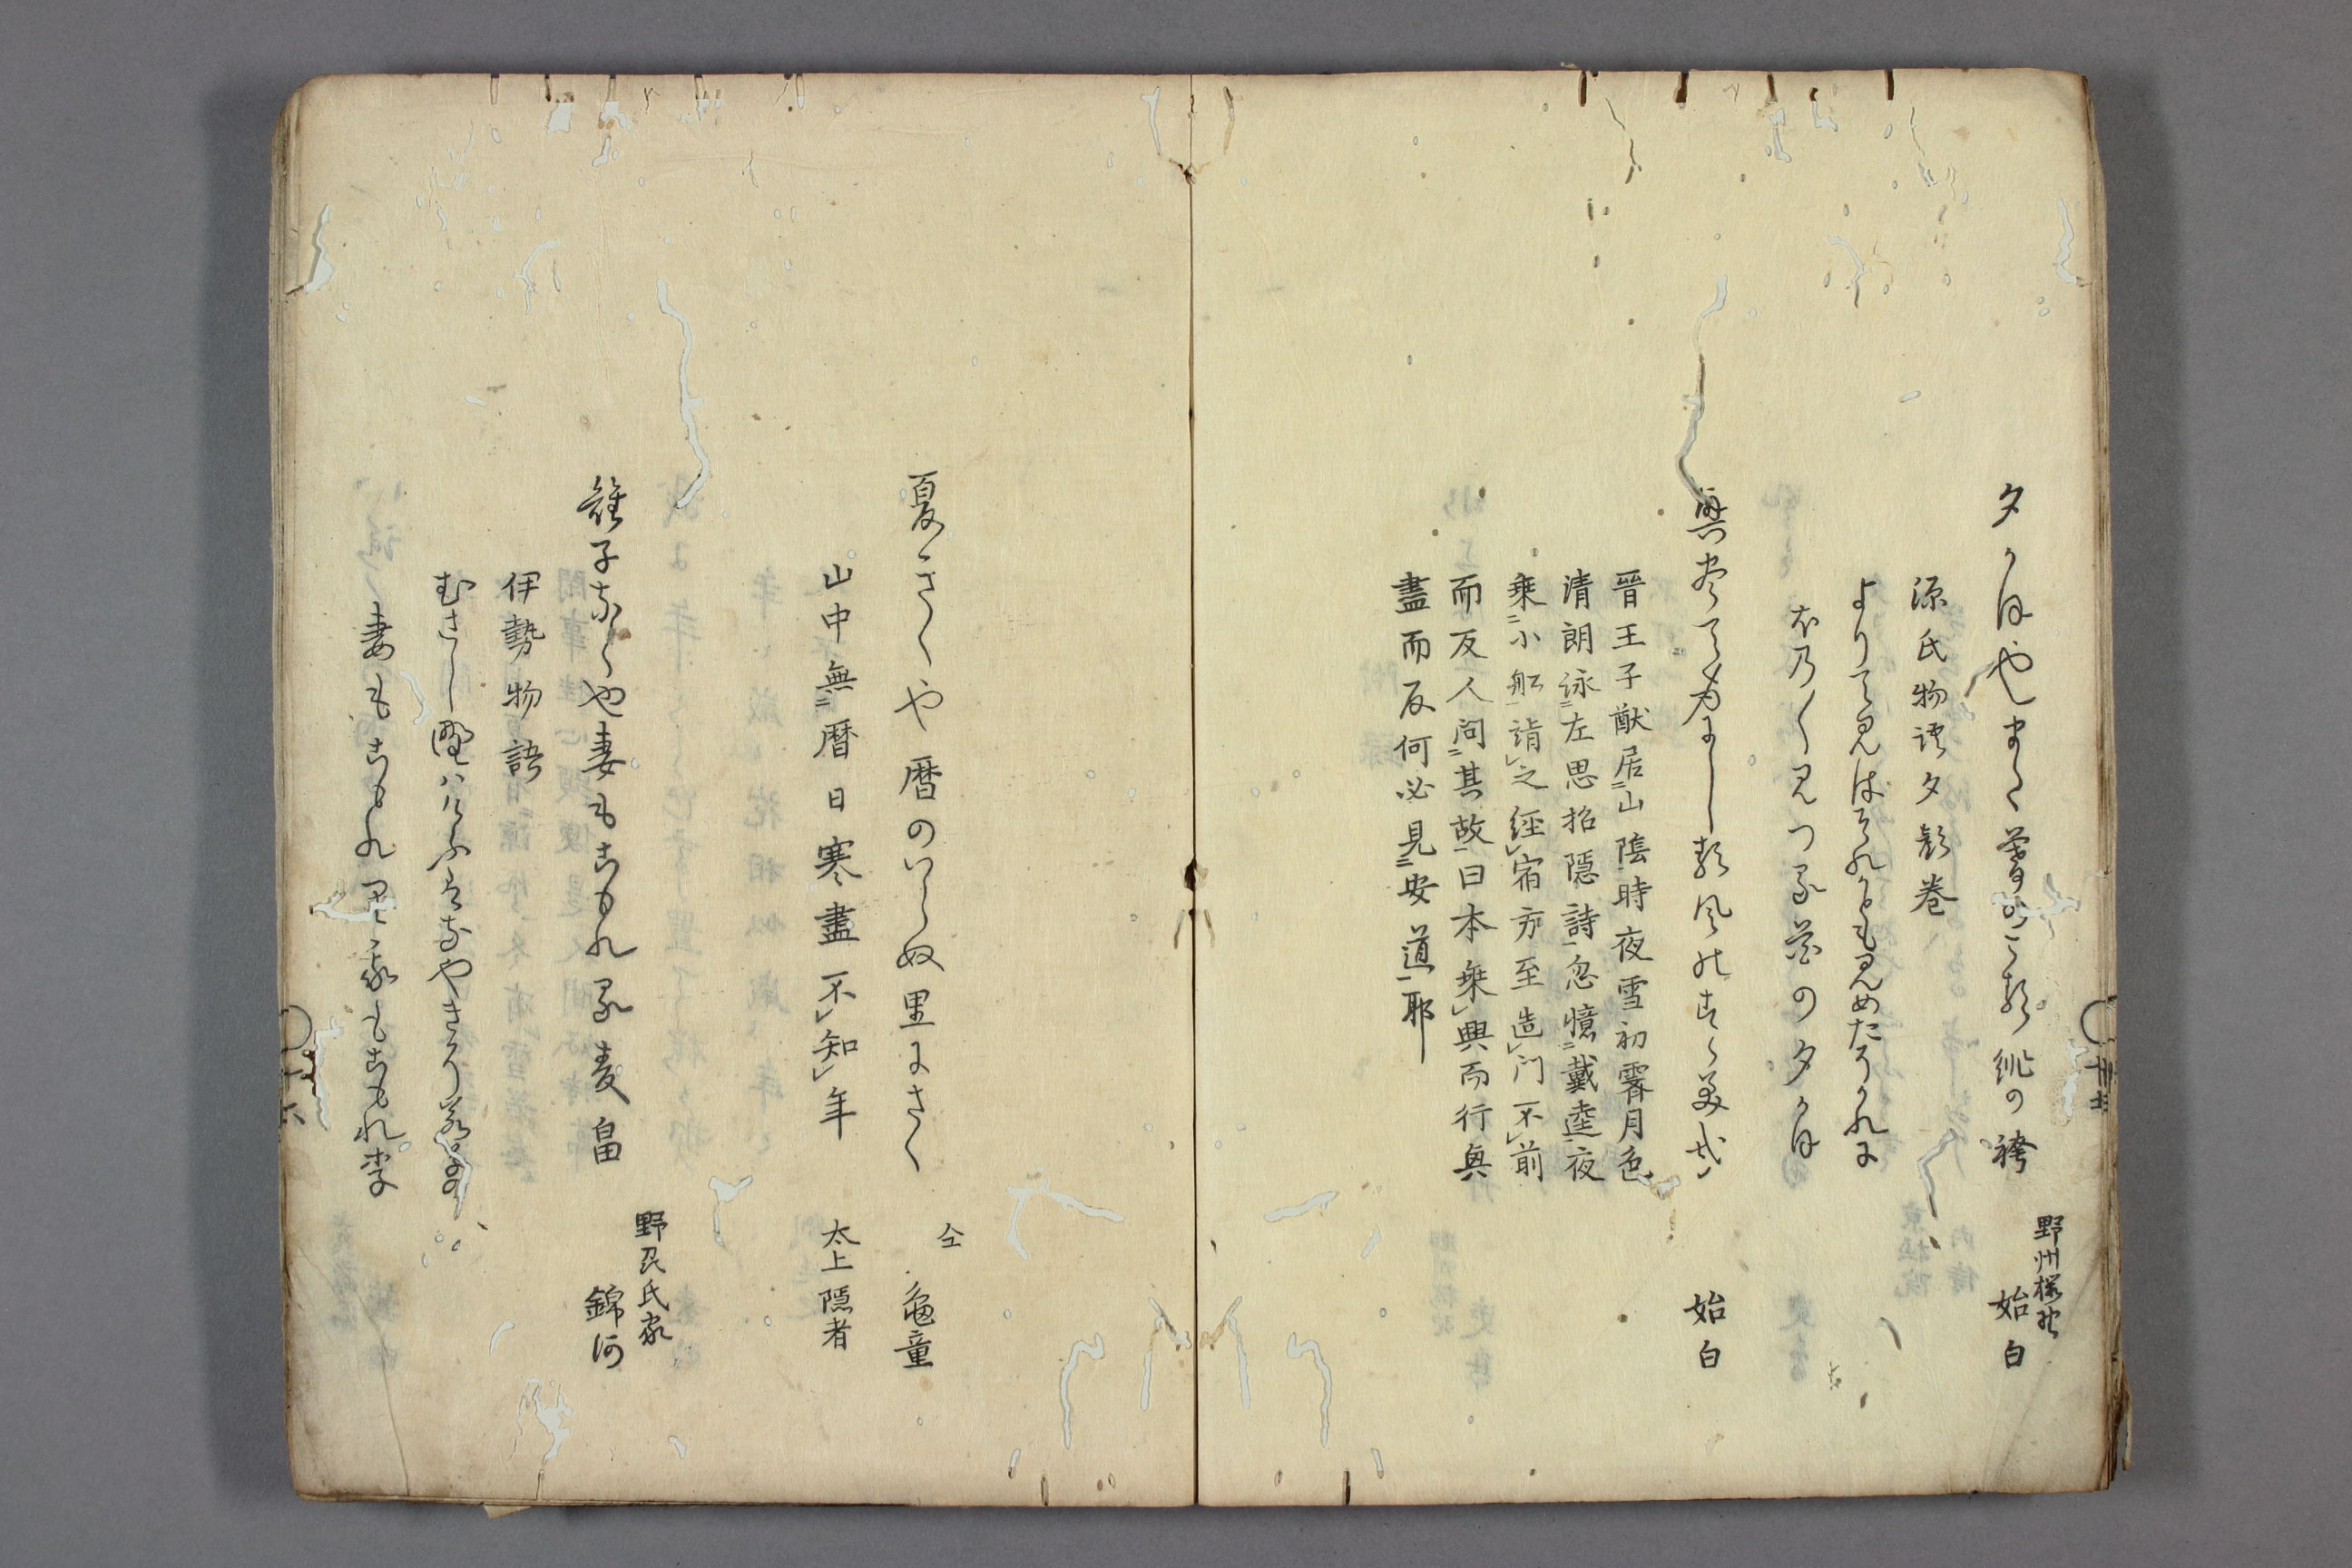 夕かほやまた
緋の袴
野州
始白
源氏物語夕顔巻
よりてこそそれかとも見めたそかれに
ほのく見つる花の夕かほ
興尽て
始白
晋王子猷居二山陰一時夜雪初霽月色
清朗詠二左思招隠詩一忽憶二戴逵一夜
乗二小舩一詣レ之経レ宿方至造レ門不レ前
而反人問二其故一曰本乗レ興而行興
盡而反何必見二安道一耶
夏きくや暦のいらぬ里にさく
仝
亀童
山中無二暦日一寒盡不レ知レ年
太上隠者
雉子なくや妻もこもれる麦畠
錦河
伊勢物語
むさし野はけふはなやきそ若草の
妻もこもれり我もこもれり